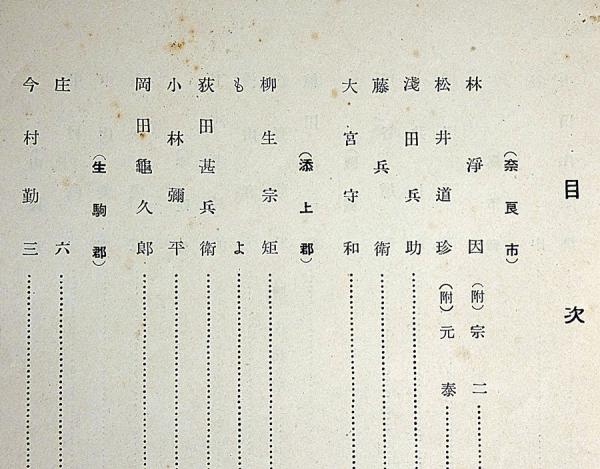 目次
(奈良市)
林淨因(附)宗二
松井道珍(附)元泰
淺田兵助
藤兵衛
大宮守和
(添上郡)
柳生宗矩
もよ
荻田甚兵衛
小林彌平
岡田龜久郎
(生駒郡)
庄六
今村勤三